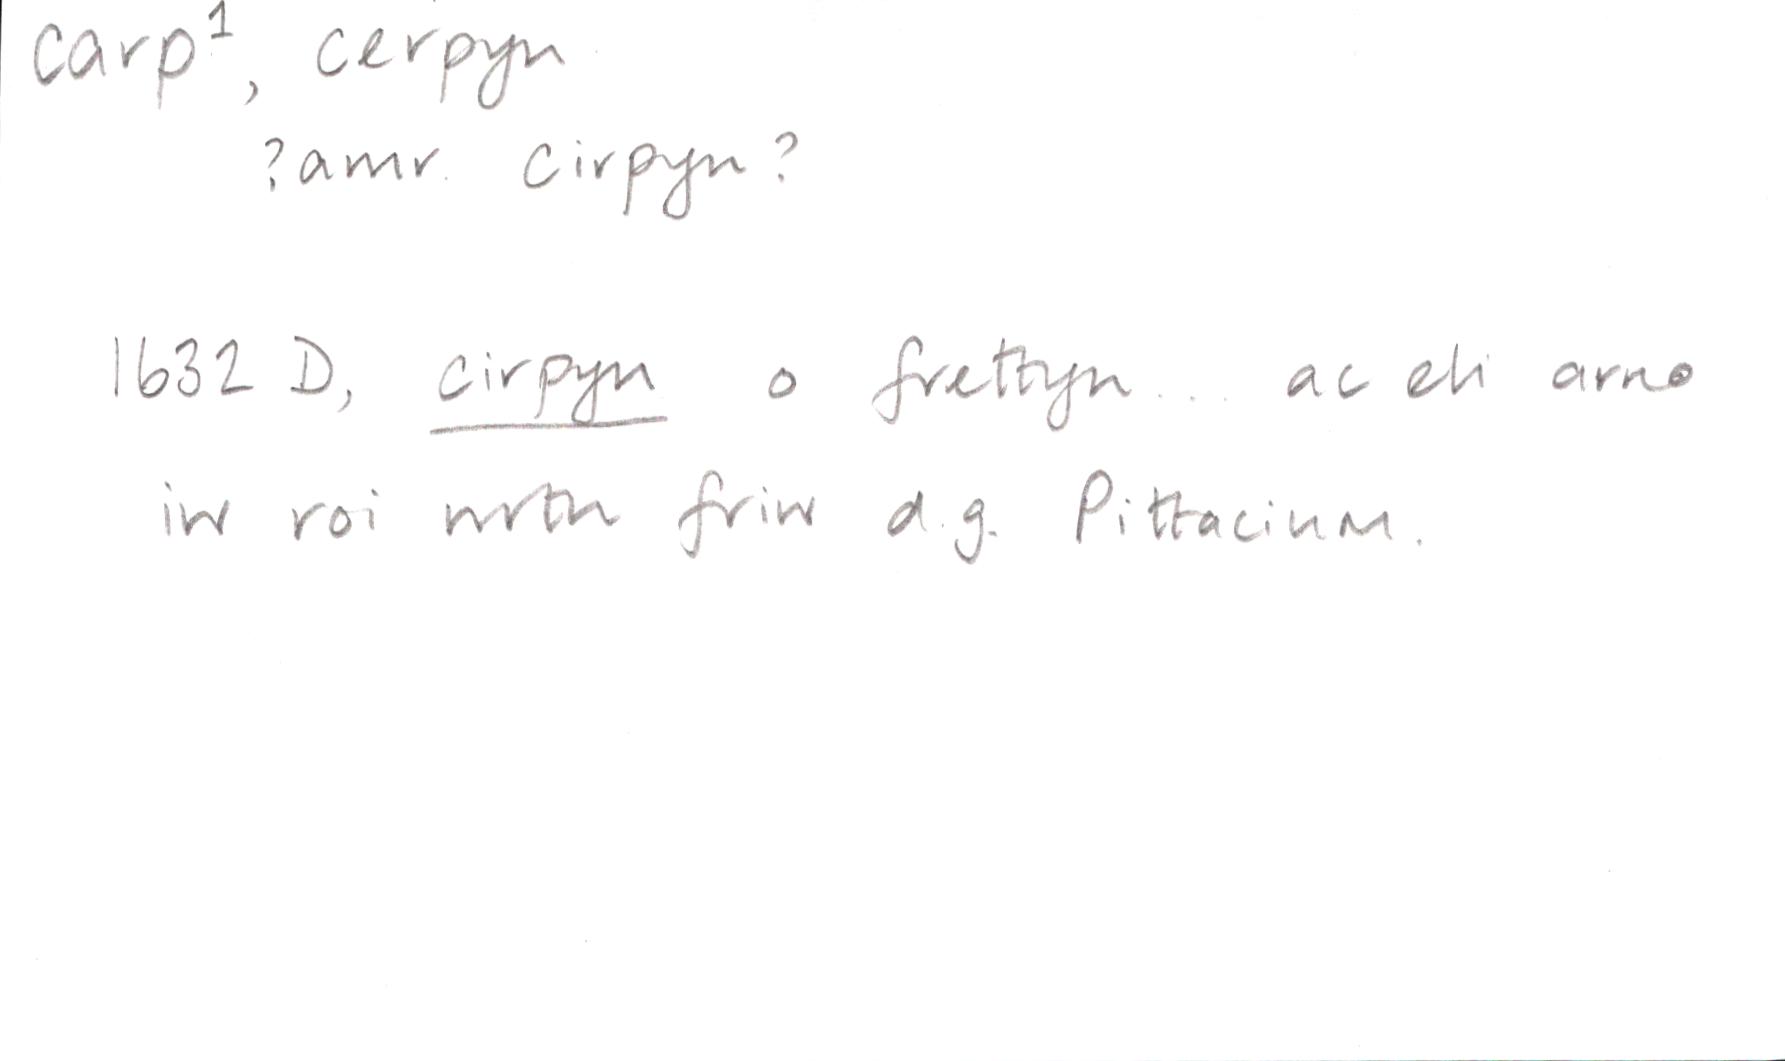 carp¹, cerpyn
?amr. cirpyn?
1632 D, cirpyn o frettyn... ac eli arno
iw roi wrth friw d.g. Pittacium.